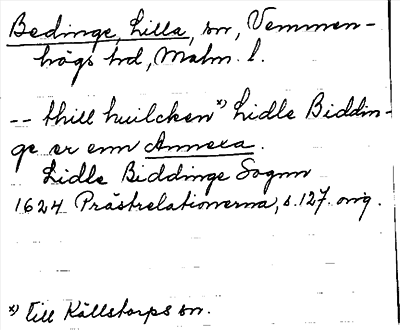 Bedinge, Lilla, sn, Vemmen-
högs hd, Malm. l.
-- thill huilcken x) Lidle Biddin-
ge er enn Annexa.
Lidle Biddinge Sognn
1624 Prästrelationerna, s. 127. orig.
x) till Källstorps sn.